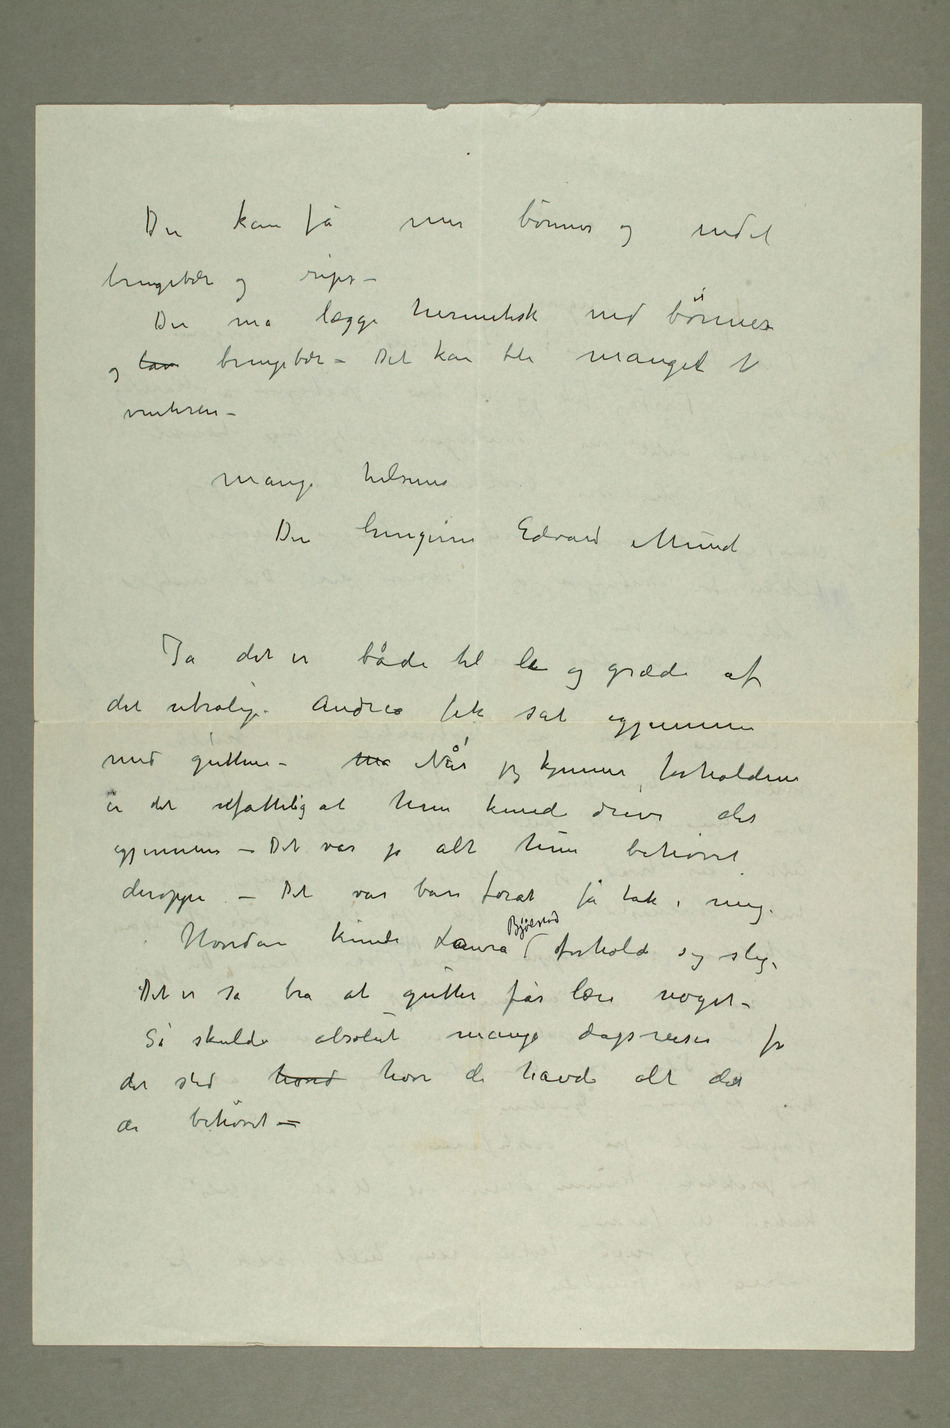 Du kan få mer bønner og endel
bringebær og rips –
Du må lægge hermetisk ned bønner
og bringebær – Det kan bli mangel t
vinteren –
Mange hilsener
Din hengivne Edvard Munch
Ja det er både til le og græde af
det utrolige Andrea fik sat igjennem
med guttene – Når jeg kjenner forholdene
er det ufattelig at hun kunde drive det
igjennem – Det var jo alt hun behøvet
deroppe – Det var bare forat få tak i mig.
Hvordan kunde Laura Bjølstad forholde sig slig.
Det er så bra at gutter får lære noget –
Så skulde absolut mange dagsreiser fra
det sted hvor de havde alt det
de behøvet –